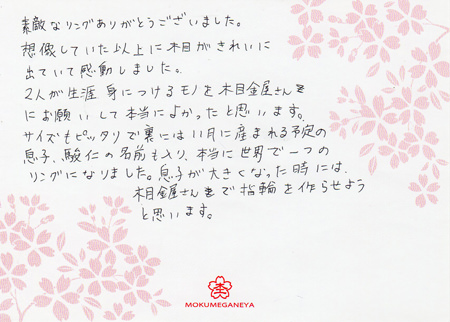 素敵なリングありがとうございました。
想像していた以上に木目がきれいに
出ていて感動しました。
2人が生涯身につけるモノを木目金屋さん
にお願いして本当によかったと思います。
サイズもピッタリで裏には11月に産まれる予定の
息子、駿仁の名前も入り、本当に世界で一つの
リングになりました。息子が大きくなった時には、
木目金屋さんで指輪を作らせよう
と思います。
MOKUMEGANEYA